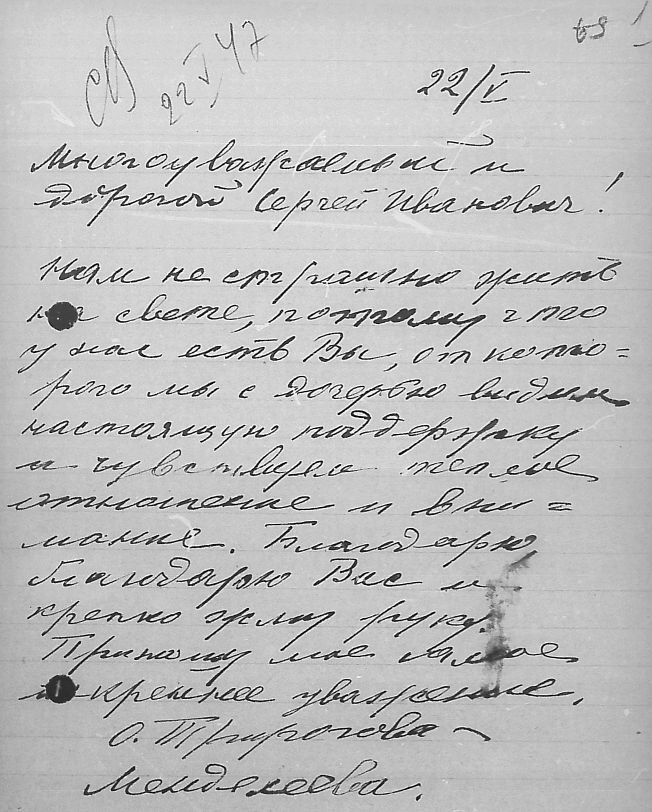 69
22 V 47
22/V
Многоуважаемый и
дорогой Сергей Иванович!
Нам не страшно жить
на свете, потому что
у нас есть Вы, от кото=
рого мы с дочерью видим
настоящую поддержку
и чувствуем теплое
отношение и вни=
мание. Благодарю,
благодарю Вас и
крепко жму руку.
Приношу мое самое
искреннее уважение.
О. Трирогова –
Менделеева.